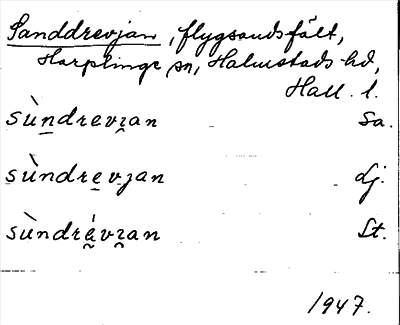 Sanddrevjan, flygsandsfält,
Harplinge sn, Halmstads hd,
Hall. l.
sùndrevɪ̯an Sa.
sùndrevjan Lj.
sùndrévɪ̯an St.
1947.